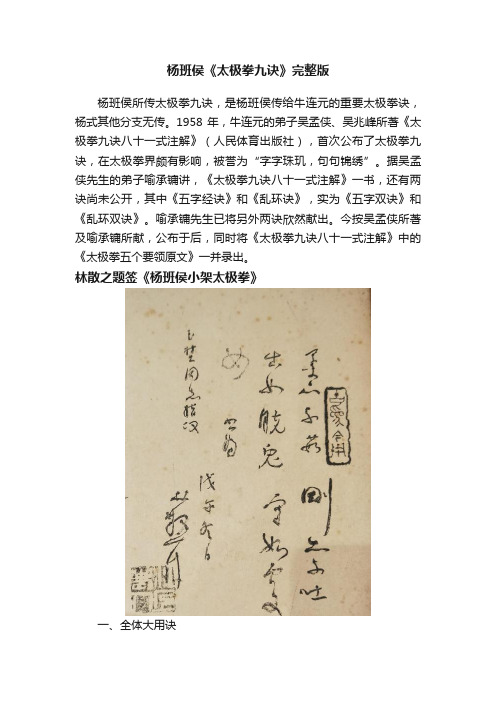 杨班侯《太极拳九诀》完整版
杨班侯所传太极拳九诀，是杨班侯传给牛连元的重要太极拳诀，
杨式其他分支无传。1958 年，牛连元的弟子吴孟侠、吴兆峰所著《太
极拳九诀八十一式注解》（人民体育出版社），首次公布了太极拳九
诀，在太极拳界颇有影响，被誉为“字字珠玑，句句锦绣”。据吴孟
侠先生的弟子喻承镛讲，《太极拳九诀八十一式注解》一书，还有两
诀尚未公开，其中《五字经诀》和《乱环诀》，实为《五字双诀》和
《乱环双诀》。喻承镛先生已将另外两诀欣然献出。今按吴孟侠所著
及喻承镛所献，公布于后，同时将《太极拳九诀八十一式注解》中的
《太极拳五个要领原文》一并录出。
林散之题签《杨班侯小架太极拳》
柔亦不茹 剛亦不吐
出如脱兔 守如處女
戊午冬日
林散之
一、全体大用诀